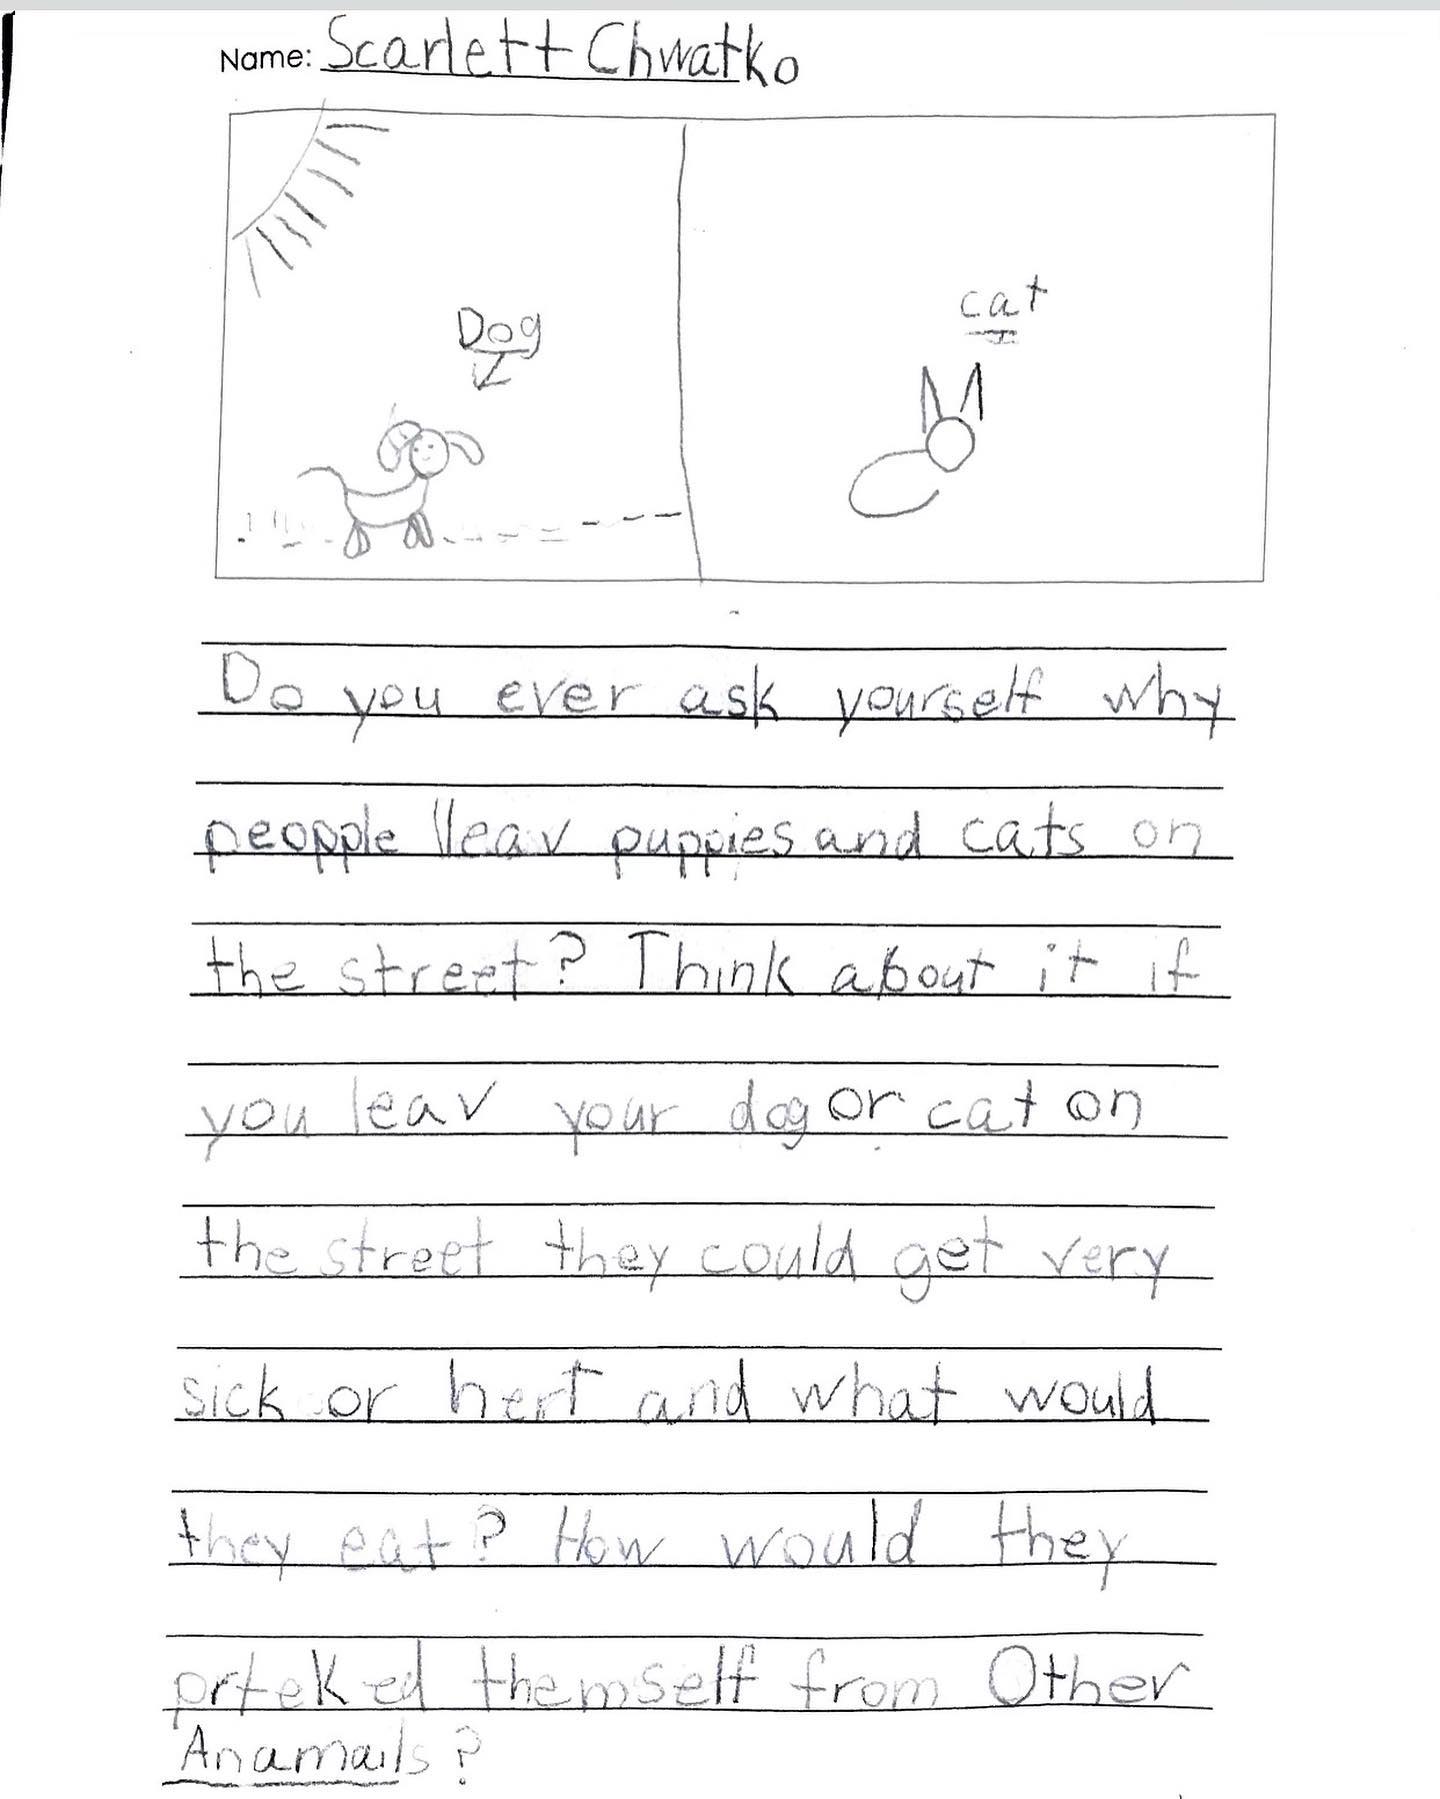 Name: Scarlett Chwatko
Dog
cat
Do you ever ask yourself why
peopple lleav puppies and cats on
the street? Think about it if
you leav your dog or cat on
the street they could get very
sick or hert and what would
they eat? How would they
prteked themself from Other
Anamails?